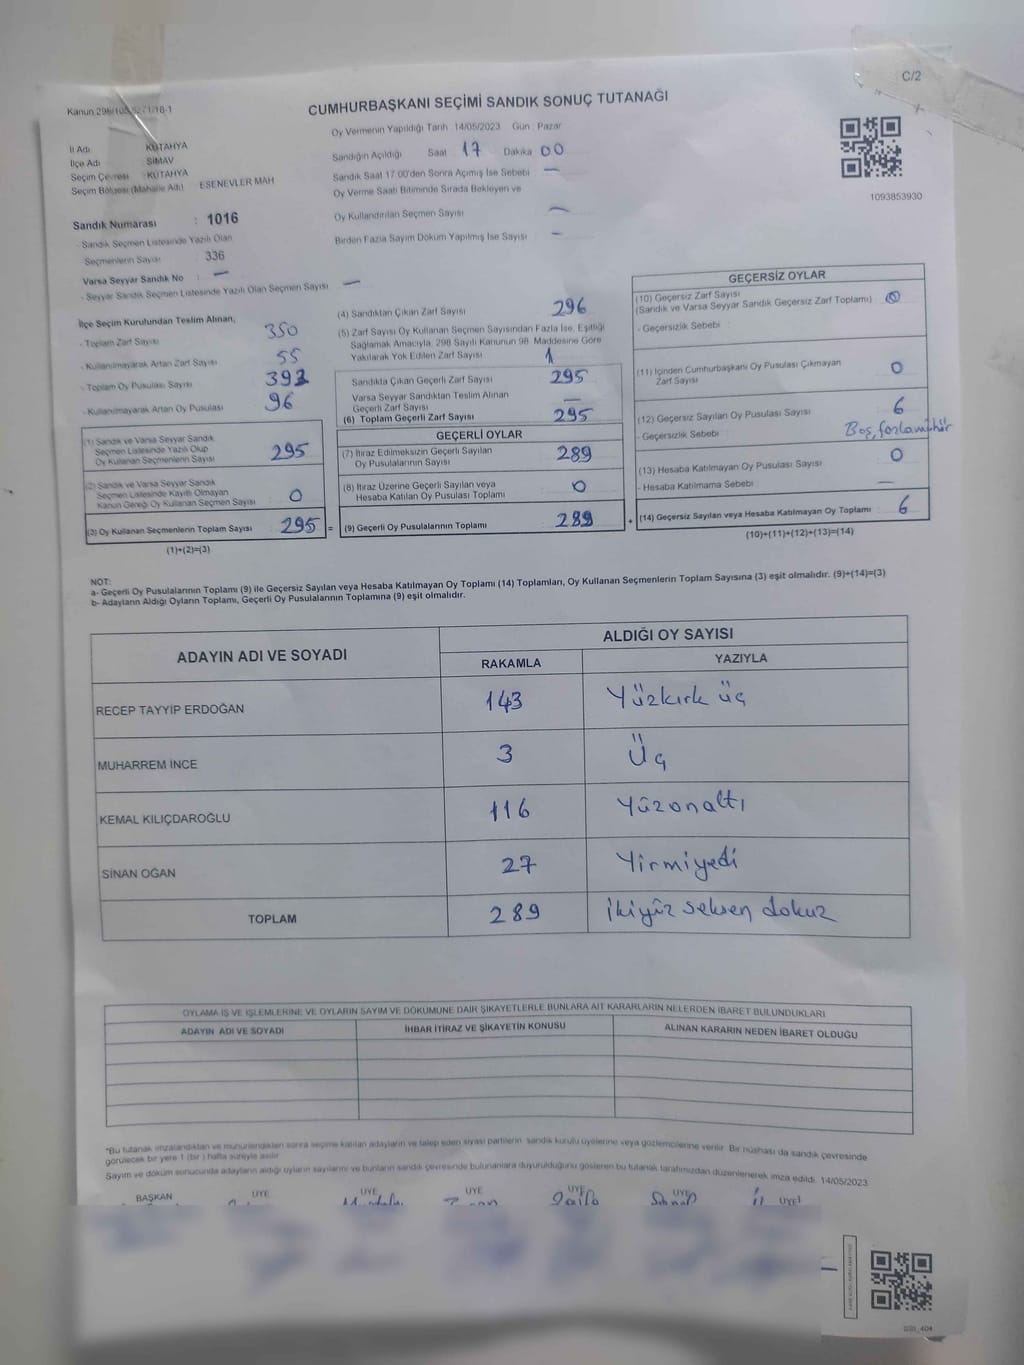 C/2
Kanun 298/105,5271/18-1
CUMHURBAŞKANI SEÇİMİ SANDIK SONUÇ TUTANAĞI
Oy Vermenin Yapıldığı Tarih 14/05/2023 Gün Pazar
İl Adı KÜTAHYA
İlçe Adı SİMAV
Seçim Çevresi KÜTAHYA
Seçim Bölgesi (Mahalle Adı) ESENEVLER MAH
Sandığın Açıldığı Saat 17 Dakika 00
Sandık Saat 17.00'den Sonra Açılmış İse Sebebi —
Oy Verme Saati Bitiminde Sırada Bekleyen ve
Oy Kullandırılan Seçmen Sayısı —
Birden Fazla Sayım Döküm Yapılmış İse Sayısı —
1093853930
Sandık Numarası : 1016
- Sandık Seçmen Listesinde Yazılı Olan
Seçmenlerin Sayısı : 336
Varsa Seyyar Sandık No : —
- Seyyar Sandık Seçmen Listesinde Yazılı Olan Seçmen Sayısı —
İlçe Seçim Kurulundan Teslim Alınan,
- Toplam Zarf Sayısı 350
- Kullanılmayarak Artan Zarf Sayısı 55
- Toplam Oy Pusulası Sayısı 392
- Kullanılmayarak Artan Oy Pusulası 96
(1) Sandık ve Varsa Seyyar Sandık
Seçmen Listesinde Yazılı Olup
Oy Kullanan Seçmenlerin Sayısı 295
(2) Sandık ve Varsa Seyyar Sandık
Seçmen Listesinde Kayıtlı Olmayan
Kanun Gereği Oy Kullanan Seçmen Sayısı 0
(3) Oy Kullanan Seçmenlerin Toplam Sayısı 295 =
(1)+(2)=(3)
(4) Sandıktan Çıkan Zarf Sayısı 296
(5) Zarf Sayısı Oy Kullanan Seçmen Sayısından Fazla İse, Eşitliği
Sağlamak Amacıyla, 298 Sayılı Kanunun 98. Maddesine Göre
Yakılarak Yok Edilen Zarf Sayısı 1
Sandıkta Çıkan Geçerli Zarf Sayısı 295
Varsa Seyyar Sandıktan Teslim Alınan
Geçerli Zarf Sayısı —
(6) Toplam Geçerli Zarf Sayısı 295
GEÇERLİ OYLAR
(7) İtiraz Edilmeksizin Geçerli Sayılan
Oy Pusulalarının Sayısı 289
(8) İtiraz Üzerine Geçerli Sayılan veya
Hesaba Katılan Oy Pusulası Toplamı 0
(9) Geçerli Oy Pusulalarının Toplamı 289 +
GEÇERSİZ OYLAR
(10) Geçersiz Zarf Sayısı
(Sandık ve Varsa Seyyar Sandık Geçersiz Zarf Toplamı) 0
- Geçersizlik Sebebi
(11) İçinden Cumhurbaşkanı Oy Pusulası Çıkmayan
Zarf Sayısı 0
(12) Geçersiz Sayılan Oy Pusulası Sayısı 6
- Geçersizlik Sebebi Boş, fazla mühür
(13) Hesaba Katılmayan Oy Pusulası Sayısı 0
- Hesaba Katılmama Sebebi —
(14) Geçersiz Sayılan veya Hesaba Katılmayan Oy Toplamı 6
(10)+(11)+(12)+(13)=(14)
NOT:
a- Geçerli Oy Pusulalarının Toplamı (9) ile Geçersiz Sayılan veya Hesaba Katılmayan Oy Toplamı (14) Toplamları, Oy Kullanan Seçmenlerin Toplam Sayısına (3) eşit olmalıdır. (9)+(14)=(3)
b- Adayların Aldığı Oyların Toplamı, Geçerli Oy Pusulalarının Toplamına (9) eşit olmalıdır.
ADAYIN ADI VE SOYADI ALDIĞI OY SAYISI
RAKAMLA YAZIYLA
RECEP TAYYİP ERDOĞAN 143 Yüzkırk üç
MUHARREM İNCE 3 Üç
KEMAL KILIÇDAROĞLU 116 Yüzonaltı
SİNAN OĞAN 27 Yirmiyedi
TOPLAM 289 İkiyüz seksen dokuz
OYLAMA İŞ VE İŞLEMLERİNE VE OYLARIN SAYIM VE DÖKÜMÜNE DAİR ŞİKAYETLERLE BUNLARA AİT KARARLARIN NELERDEN İBARET BULUNDUKLARI
ADAYIN ADI VE SOYADI İHBAR İTİRAZ VE ŞİKAYETİN KONUSU ALINAN KARARIN NEDEN İBARET OLDUĞU
*Bu tutanak imzalandıktan ve mühürlendikten sonra seçime katılan adayların ve talep eden siyasi partilerin sandık kurulu üyelerine veya gözlemcilerine verilir. Bir nüshası da sandık çevresinde
görülecek bir yere 1 (bir) hafta süreyle asılır.
Sayım ve döküm sonucunda adayların aldığı oyların sayılarını ve bunların sandık çevresinde bulunanlara duyurulduğunu gösteren bu tutanak tarafımızdan düzenlenerek imza edildi. 14/05/2023
BAŞKAN ÜYE ÜYE ÜYE ÜYE ÜYE ÜYE